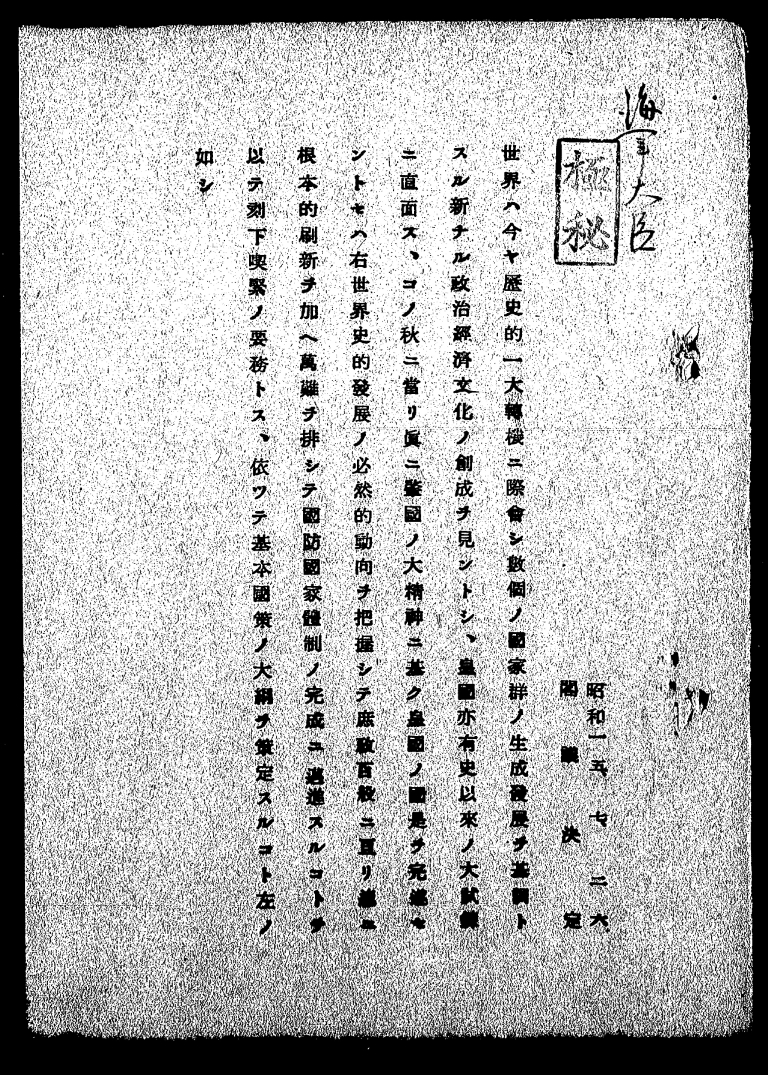 海軍大臣
極秘
昭和一五、七、二六、
閣議決定
世界ハ今ヤ歷史的一大轉機ニ際會シ數個ノ國家群ノ生成發展ヲ基調ト
スル新ナル政治經濟文化ノ創成ヲ見ントシ、皇國亦有史以來ノ大試鍊
ニ直面ス、コノ秋ニ當リ眞ニ肇國ノ大精神ニ基ク皇國ノ國是ヲ完遂セ
ントセハ右世界史的發展ノ必然的動向ヲ把握シテ庶政百般ニ亘リ速ニ
根本的刷新ヲ加ヘ萬難ヲ排シテ國防國家體制ノ完成ニ邁進スルコトヲ
以テ刻下喫緊ノ要務トス、依ツテ基本國策ノ大綱ヲ策定スルコト左ノ
如シ